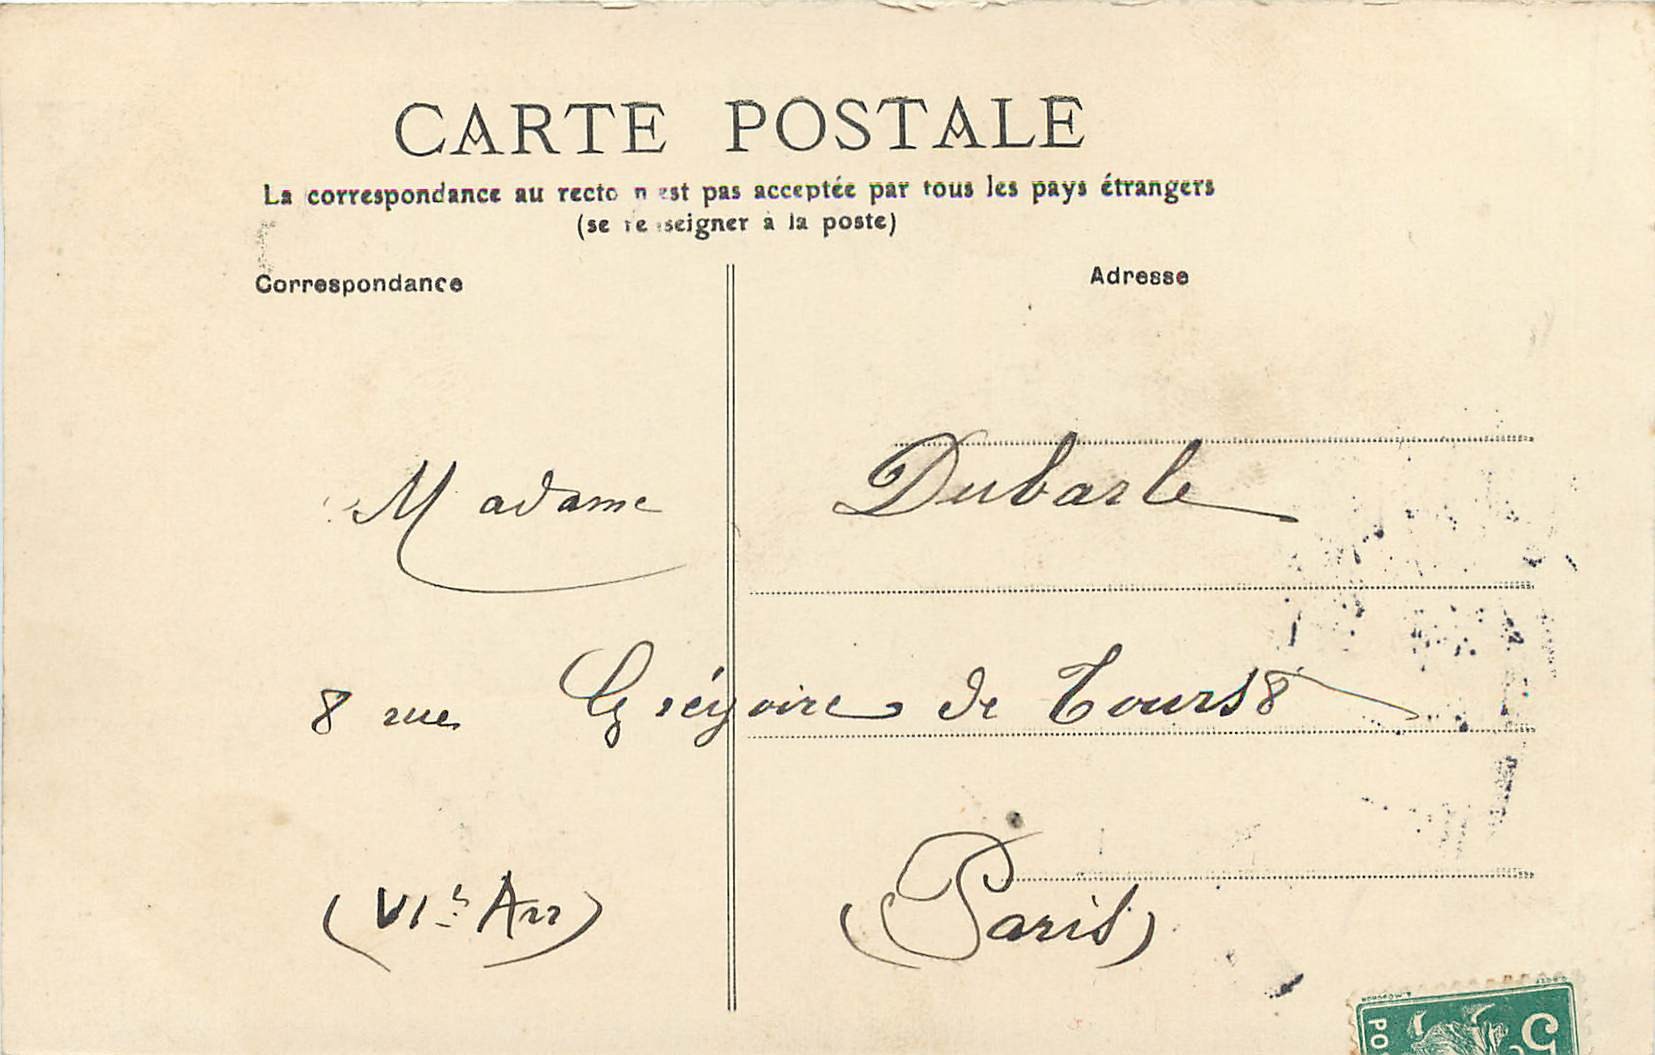 CARTE POSTALE
La correspondance au recto n'est pas acceptée par tous les pays étrangers
(se renseigner à la poste)
Correspondance
Adresse
Madame Dubarle
8 rue Grégoire de Tours 8
(VIe Arr) (Paris)
5
PO